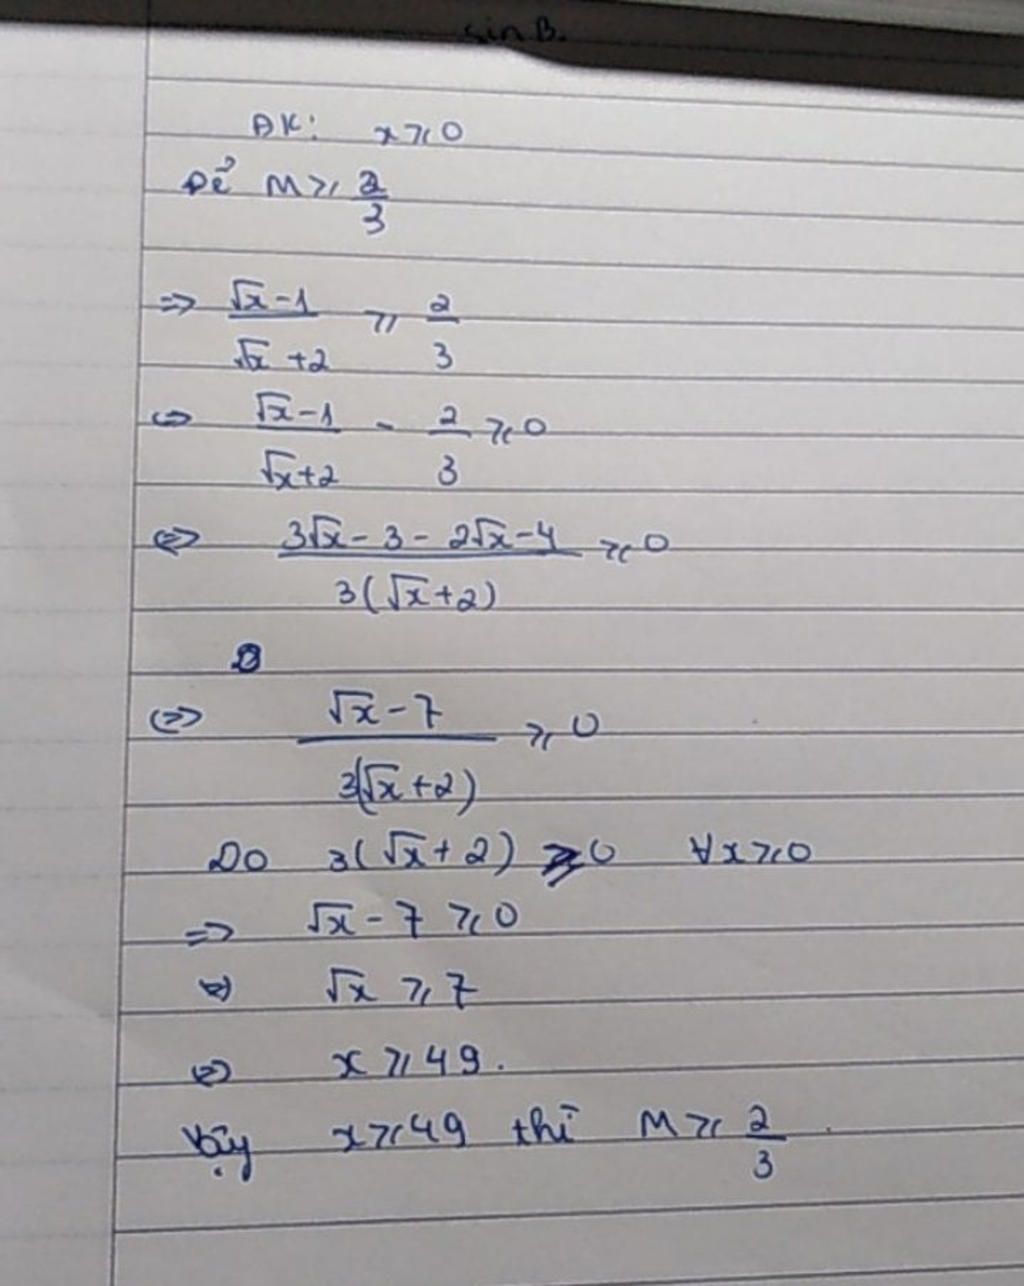 sin B.
ĐK: x ⩾ 0
Để M ⩾ 2/3
=> (√x - 1)/(√x + 2) ⩾ 2/3
<=> (√x - 1)/(√x + 2) - 2/3 ⩾ 0
<=> (3√x - 3 - 2√x - 4)/(3(√x + 2)) ⩾ 0
<=> (√x - 7)/(3(√x + 2)) ⩾ 0
Do 3(√x + 2) > 0 ∀x ⩾ 0
=> √x - 7 ⩾ 0
<=> √x ⩾ 7
<=> x ⩾ 49.
Vậy x ⩾ 49 thì M ⩾ 2/3.